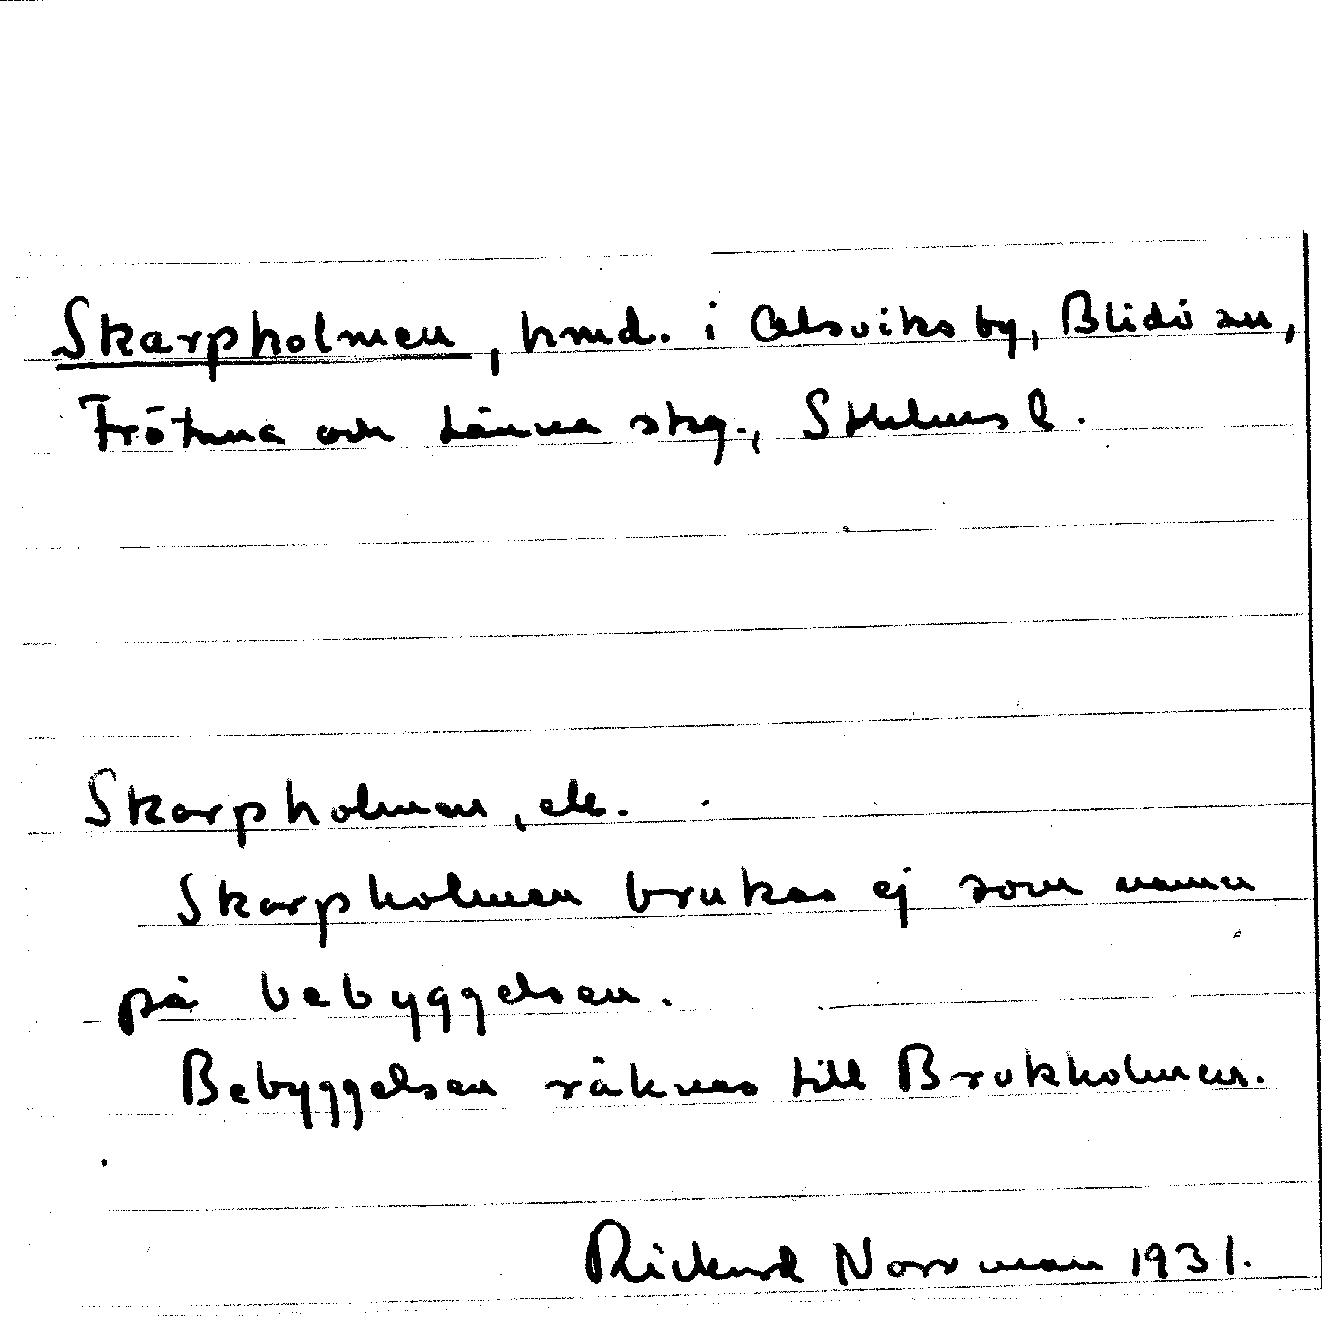 Skarpholmen, hmd. i Oelsviks by, Blidö sn,
Frötuna och Länna skg., Sthlms l.
Skarpholmen, ek.
Skarpholmen brukas ej som namn
på bebyggelsen.
Bebyggelsen räknas till Brokholmen.
Rickard Norrman 1931.